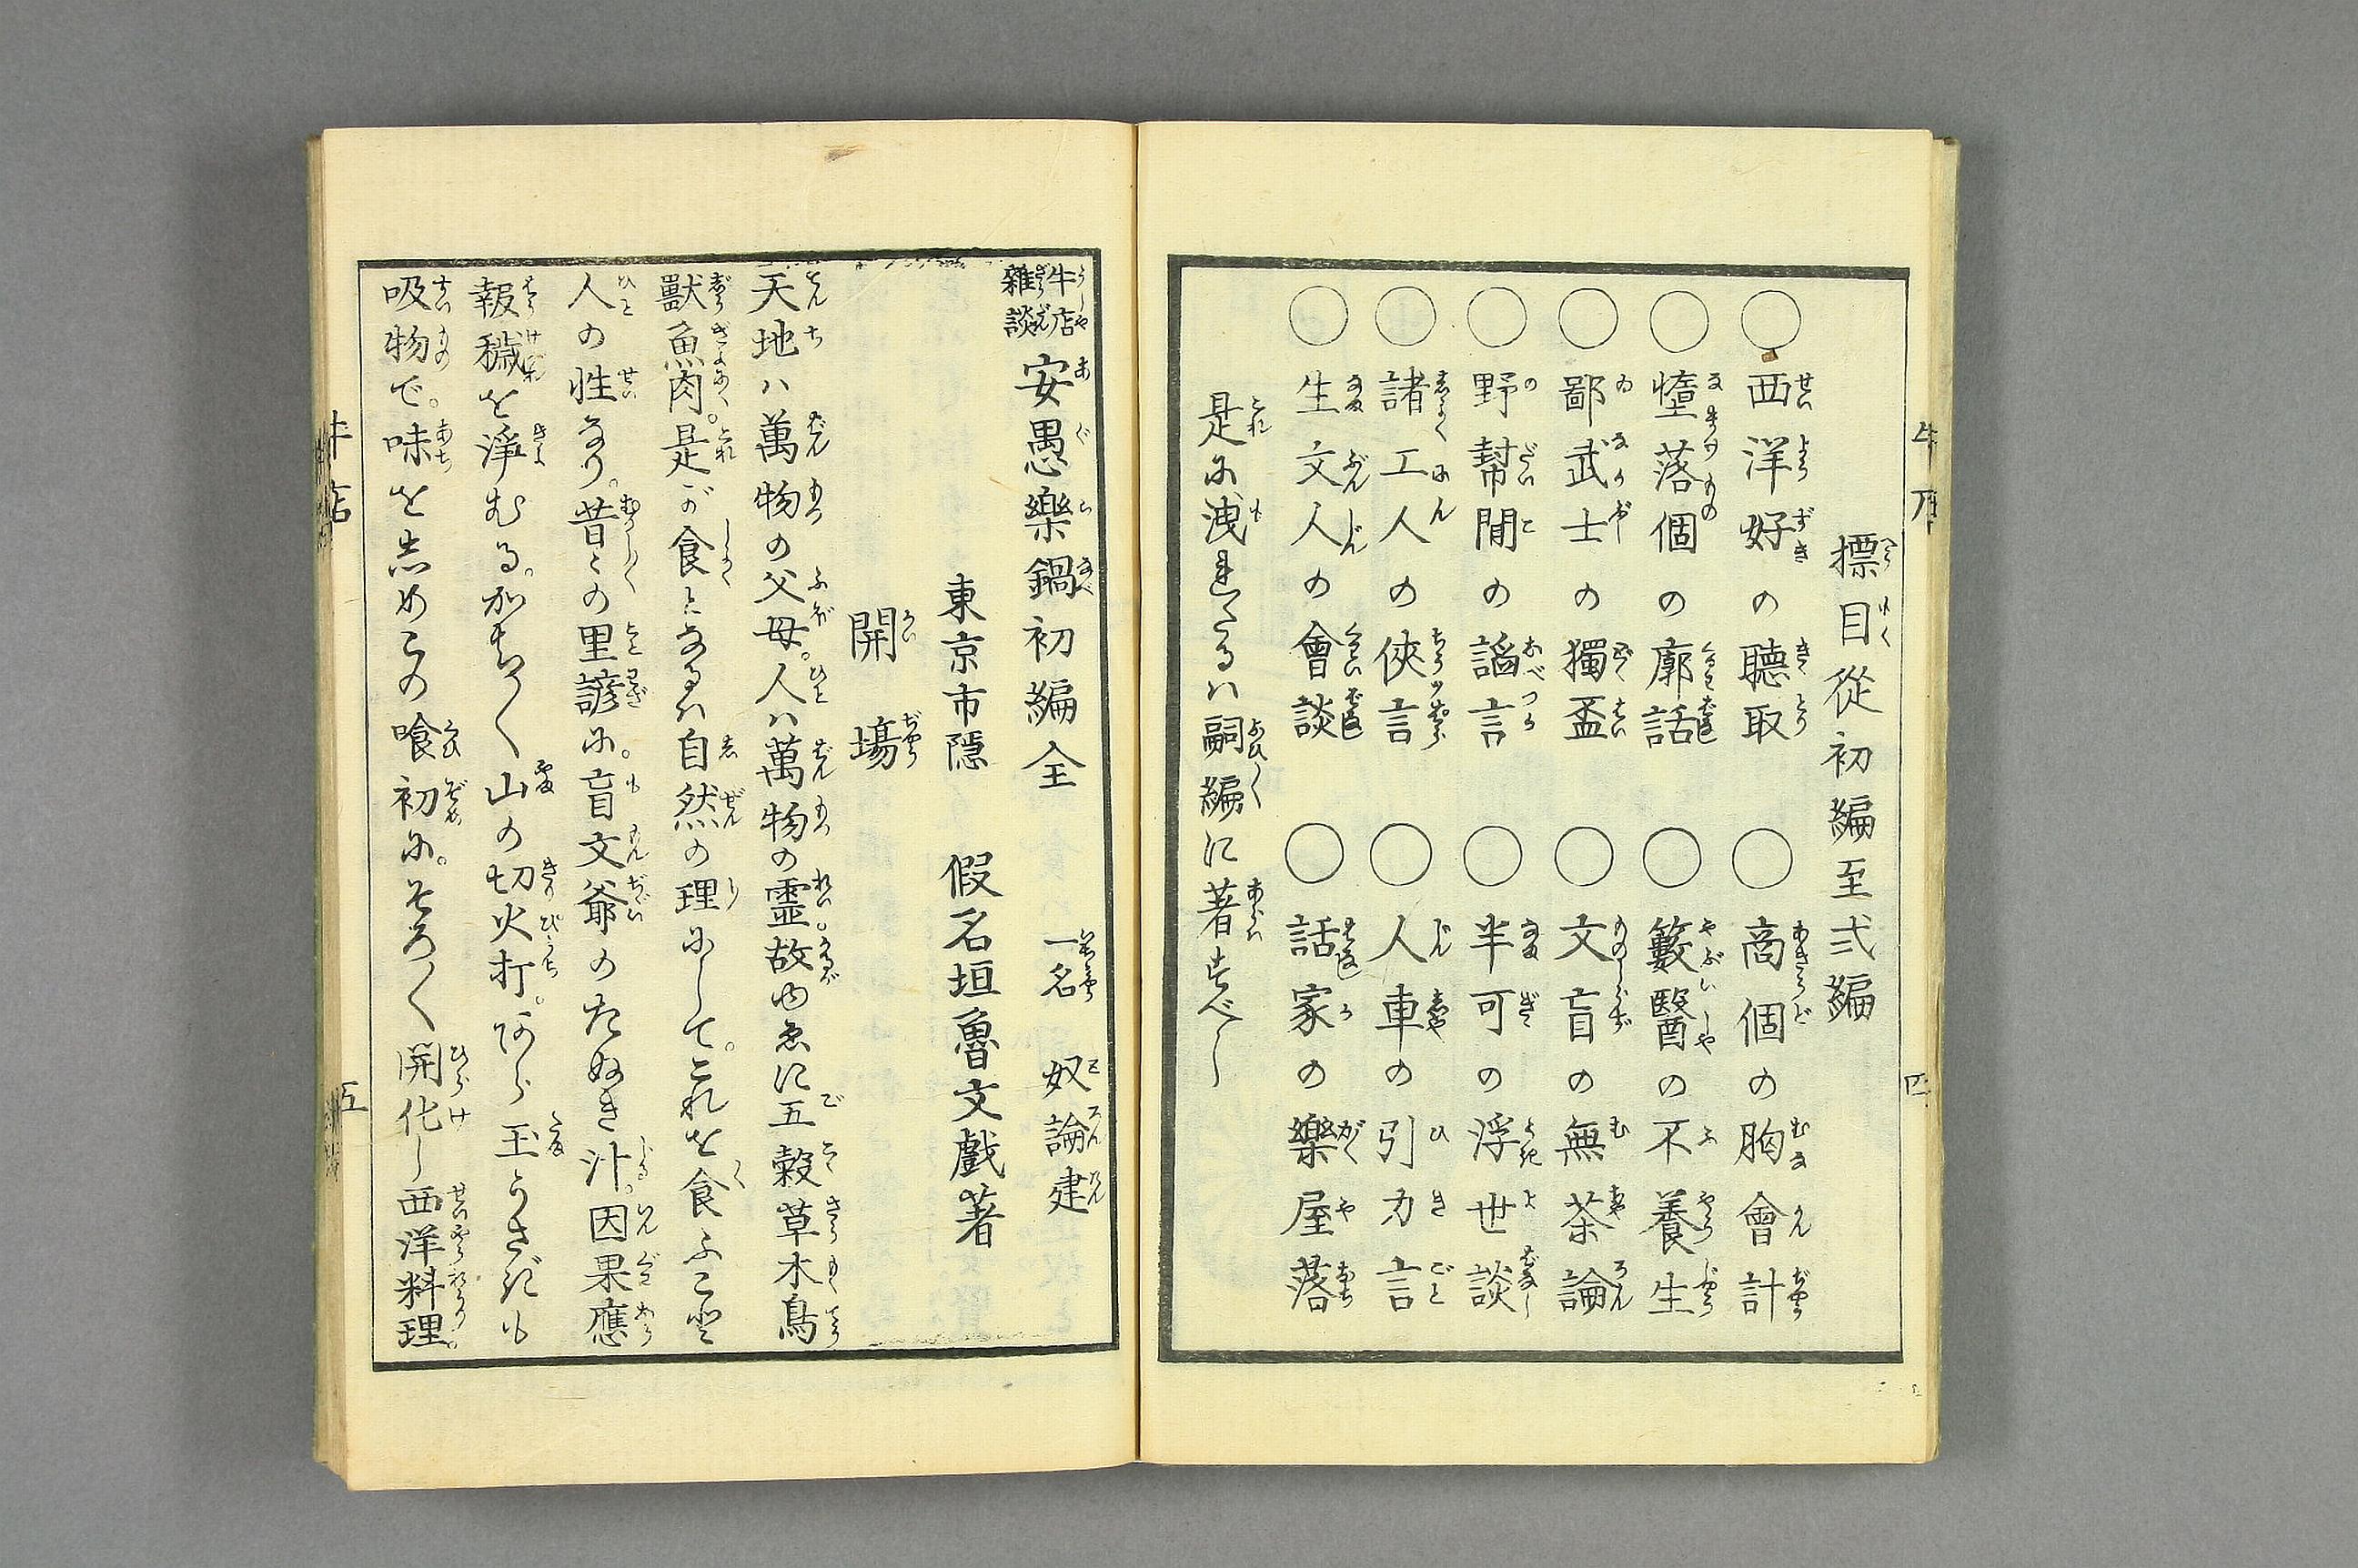 標目從初編至弍編
○西洋好の聽取
○商個の胸會計
○墮落個の廓話
○籔醫の不養生
○鄙武士の獨盃
○文盲の無茶論
○野幇間の謟言
○半可の浮世談
○諸工人の俠言
○人車の引力言
○生文人の會談
○話家の樂屋落
是に洩れたるハ嗣編に著すべし
四
牛店雜談 安愚樂鍋初編全 一名 奴論建
東京市隱 假名垣魯文戲著
開場
天地ハ萬物の父母。人ハ萬物の霊。故ゆゑに五穀草木鳥
獸魚肉。是が食となるハ自然の理にして。これを食ふこと
人の性なり。昔〻の里諺に。盲文爺のたぬき汁。因果應
報穢を淨むる。かち〱山の切火打。あら玉うさぎも
吸物で。味をしめこの喰初に。そろ〱開化し西洋料理。
牛店
五